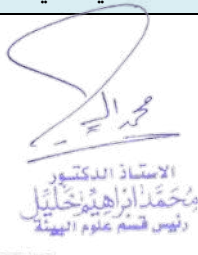 الاستاذ الدكتور
محمد ابراهيم خليل
رئيس قسم علوم البيئة